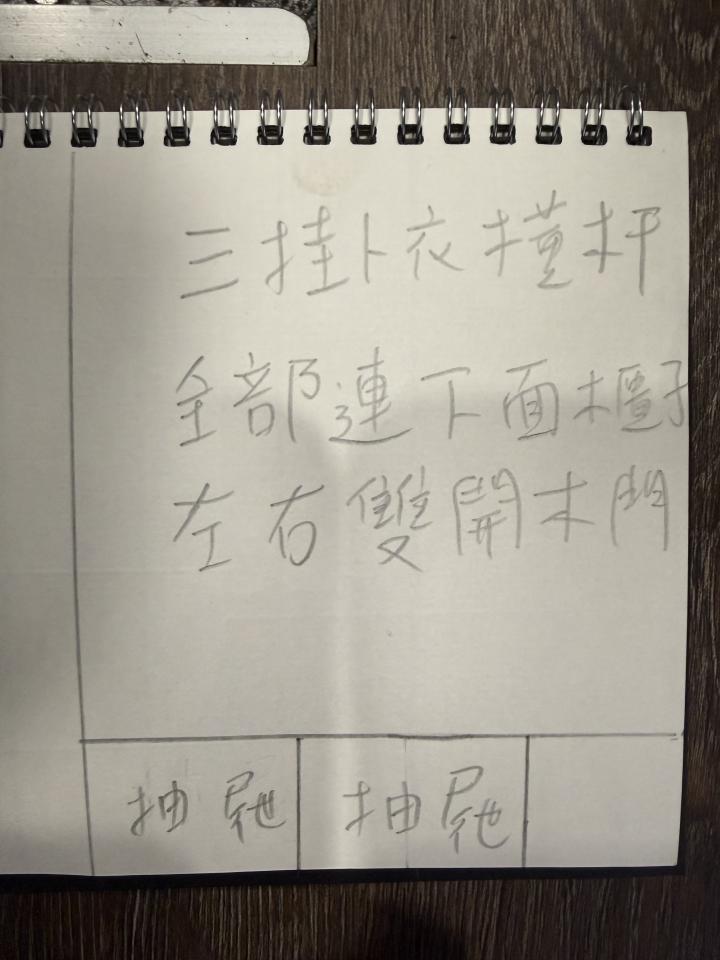 三掛衣橫杆
全部連下面櫃子
左右雙開木門
抽屜 抽屜